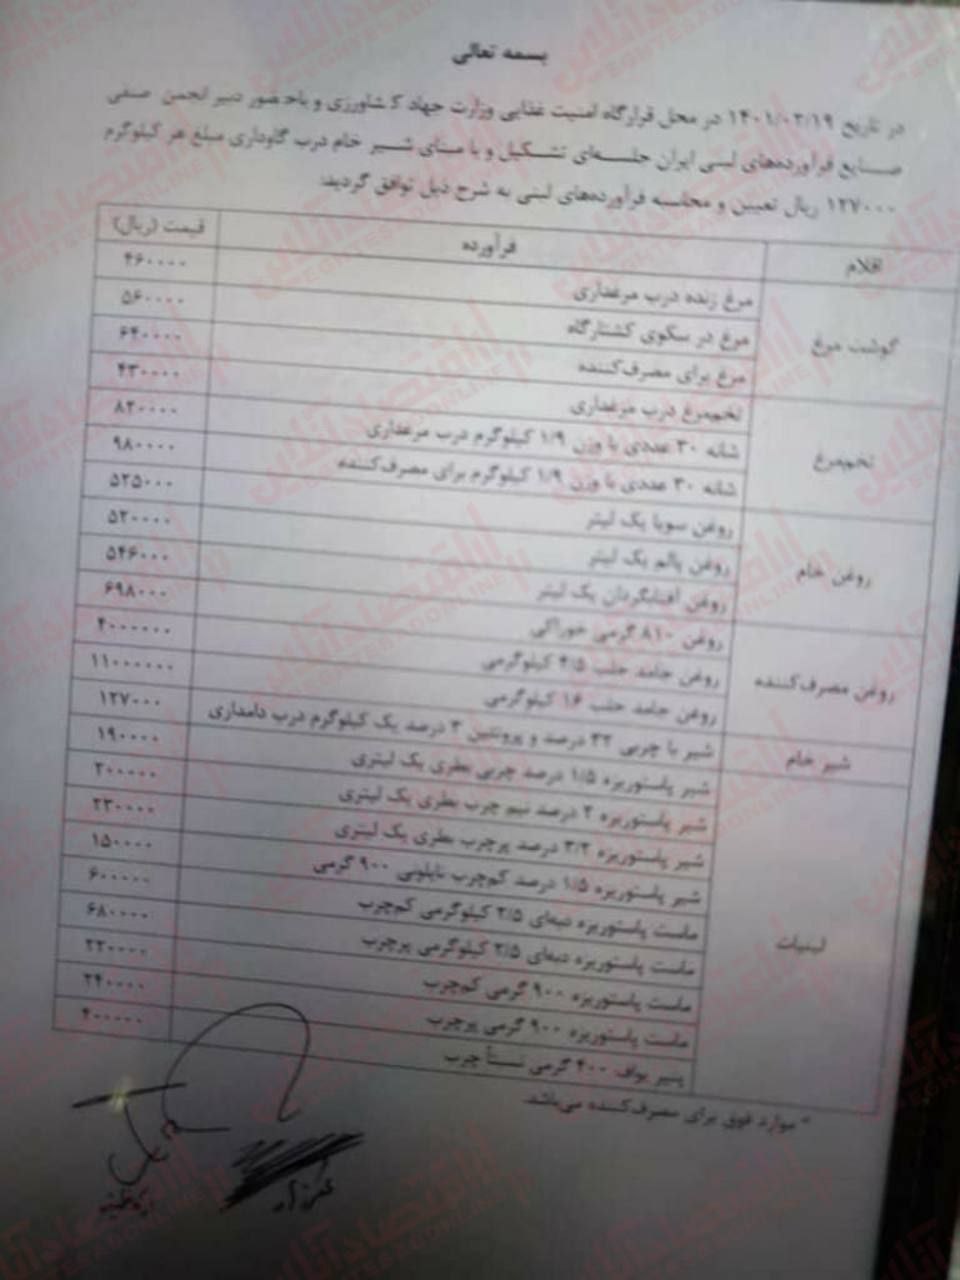 بسمه تعالی
در تاریخ ۱۴۰۱/۰۳/۱۹ در محل قرارگاه امنیت غذایی وزارت جهاد کشاورزی و باحضور دبیر انجمن صنفی
صنایع فرآورده‌های لبنی ایران جلسه‌ای تشکیل و با مبنای شیر خام درب گاوداری مبلغ هر کیلوگرم
۱۲۷۰۰۰ ریال تعیین و محاسبه فرآورده‌های لبنی به شرح ذیل توافق گردید:
اقلام فرآورده قیمت (ریال)
گوشت مرغ
مرغ زنده درب مرغداری ۴۶۰۰۰۰
مرغ در سکوی کشتارگاه ۵۶۰۰۰۰
مرغ برای مصرف‌کننده ۶۴۰۰۰۰
تخم‌مرغ
تخم‌مرغ درب مرغداری ۴۳۰۰۰۰
شانه ۳۰ عددی با وزن ۱/۹ کیلوگرم درب مرغداری ۸۲۰۰۰۰
شانه ۳۰ عددی با وزن ۱/۹ کیلوگرم برای مصرف‌کننده ۹۸۰۰۰۰
روغن خام
روغن سویا یک لیتر ۵۲۵۰۰۰
روغن پالم یک لیتر ۵۲۰۰۰۰
روغن آفتابگردان یک لیتر ۵۴۶۰۰۰
روغن مصرف‌کننده
روغن ۸۱۰ گرمی خوراکی ۶۹۸۰۰۰
روغن جامد حلب ۴/۵ کیلوگرمی ۴۰۰۰۰۰۰
روغن جامد حلب ۱۶ کیلوگرمی ۱۱۰۰۰۰۰۰
شیر خام
شیر با چربی ۳۲ درصد و پروتئین ۳ درصد یک کیلوگرم درب دامداری ۱۲۷۰۰۰
لبنیات
شیر پاستوریزه ۱/۵ درصد چربی بطری یک لیتری ۱۹۰۰۰۰
شیر پاستوریزه ۲ درصد نیم چرب بطری یک لیتری ۲۰۰۰۰۰
شیر پاستوریزه ۳/۲ درصد پرچرب بطری یک لیتری ۲۳۰۰۰۰
شیر پاستوریزه ۱/۵ درصد کم‌چرب نایلونی ۹۰۰ گرمی ۱۵۰۰۰۰
ماست پاستوریزه دبه‌ای ۲/۵ کیلوگرمی کم‌چرب ۶۰۰۰۰۰
ماست پاستوریزه دبه‌ای ۲/۵ کیلوگرمی پرچرب ۶۸۰۰۰۰
ماست پاستوریزه ۹۰۰ گرمی کم‌چرب ۲۲۰۰۰۰
ماست پاستوریزه ۹۰۰ گرمی پرچرب ۲۴۰۰۰۰
پنیر یواف ۴۰۰ گرمی نسبتاً چرب ۴۰۰۰۰۰
* موارد فوق برای مصرف‌کننده می‌باشد.
اقتصادآنلاین
EGHTESADONLINE